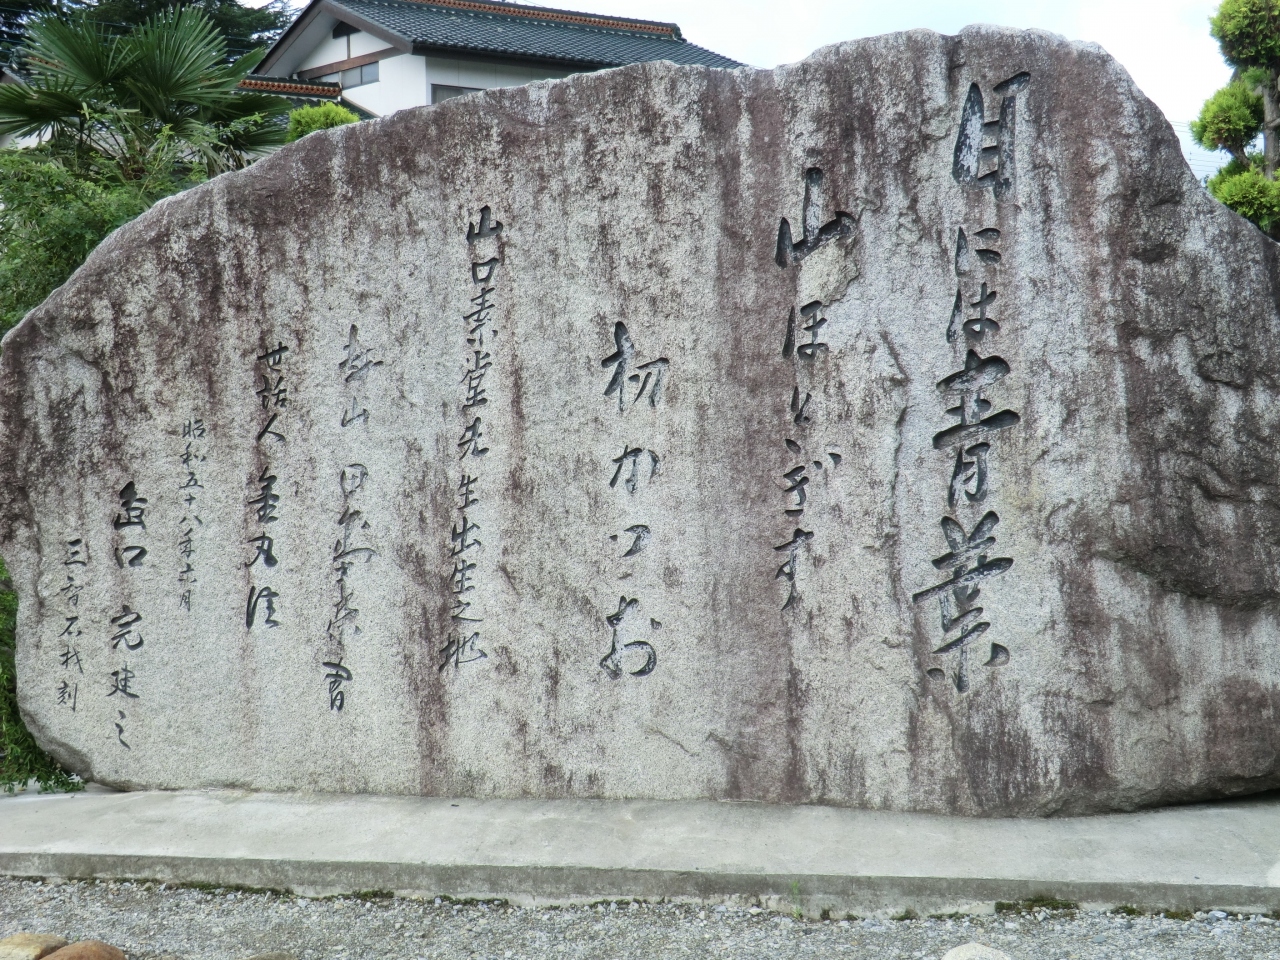 目には青葉
山ほとゝぎす
初かつお
山口素堂先生出生之地
山 田
世話人 金丸
昭和五十八年六月
口 完建之
三 石材刻